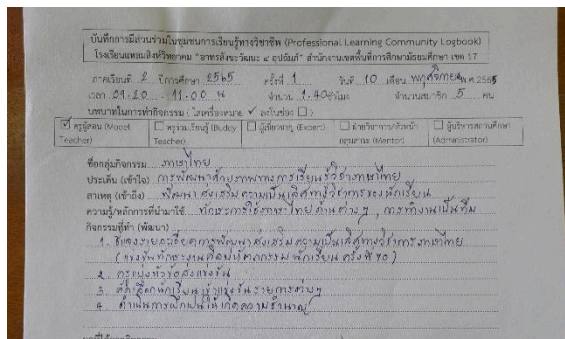 บันทึกการมีส่วนร่วมในชุมชนการเรียนรู้ทางวิชาชีพ (Professional Learning Community Logbook)
โรงเรียนแหลมสิงห์วิทยาคม "อาทรสังขะวัฒนะ ๔ อุปถัมภ์" สำนักงานเขตพื้นที่การศึกษามัธยมศึกษา เขต 17
ภาคเรียนที่ 2 ปีการศึกษา 2565 ครั้งที่ 1 วันที่ 10 เดือน พฤศจิกายน พ.ศ.2565
เวลา 09.20 - 11.00 น จำนวน 1.40 ชั่วโมง จำนวนสมาชิก 5 คน
บทบาทในการทำกิจกรรม ( ใส่เครื่องหมาย ✓ ลงในช่อง ☐ )
☑ ครูผู้สอน (Model Teacher) ☐ ครูร่วมเรียนรู้ (Buddy Teacher) ☐ ผู้เชี่ยวชาญ (Expert) ☐ ฝ่ายวิชาการ/หัวหน้ากลุ่มสาระ (Mentor) ☐ ผู้บริหารสถานศึกษา (Administrator)
ชื่อกลุ่มกิจกรรม ภาษาไทย
ประเด็น (เข้าใจ) การพัฒนาศักยภาพทางการเรียนรู้วิชาภาษาไทย
สาเหตุ (เข้าถึง) พัฒนา ส่งเสริมความเป็นเลิศทางวิชาการของนักเรียน
ความรู้/หลักการที่นำมาใช้ ทักษะการใช้ภาษาไทยด้านต่างๆ , การทำงานเป็นทีม
กิจกรรมที่ทำ (พัฒนา)
1. ชี้แจงรายละเอียดการพัฒนาส่งเสริมความเป็นเลิศทางวิชาการภาษาไทย
( แข่งขันทักษะงานศิลปหัตถกรรมนักเรียน ครั้งที่ 70 )
2. กำหนดหัวข้อส่งแข่งขัน
3. คัดเลือกนักเรียนเข้าแข่งขันรายการต่างๆ
4. ดำเนินการฝึกฝนให้เกิดความชำนาญ